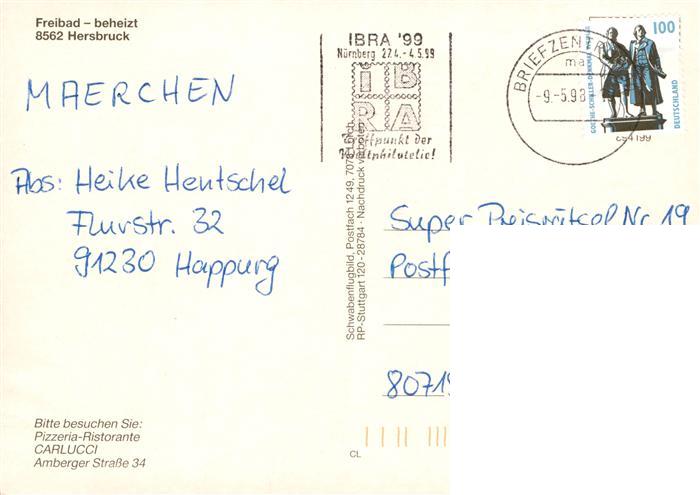 Freibad – beheizt
8562 Hersbruck
MAERCHEN
Abs: Heike Hentschel
Flurstr. 32
91230 Happurg
Bitte besuchen Sie:
Pizzeria-Ristorante
CARLUCCI
Amberger Straße 34
IBRA '99
Nürnberg 27.4. - 4.5.99
IB
RA
Treffpunkt der
Weltphilatelie!
Schwabenflugbild, Postfach 1249, 707
RP-Stuttgart 120 - 28784 · Nachdruck verboten
CL
BRIEFZENTR
-9.-5.98
GOETHE-SCHILLER-DENKMAL WEIMAR
100
DEUTSCHLAND
Super Preisrätsel Nr. 19
Postf
8071